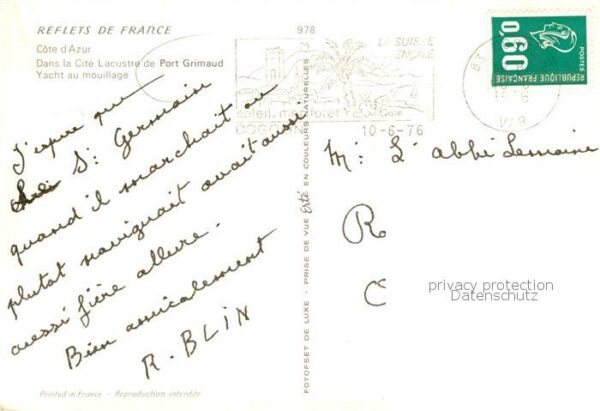 REFLETS DE FRANCE
Côte d'Azur
Dans la Cité Lacustre de Port Grimaud
Yacht au mouillage
978
J'espère que
St Germain
quand il marchait ou
plutot naviguait avait aussi
aussi fière allure.
Bien amicalement
R. BLIN
Printed in France - Reproduction interdite
FOTOFSET DE LUXE - PRISE DE VUE Erté EN COULEURS NATURELLES
LA SUISSE
soleil, mer, foret
COGOLIN
10-6-76
VAR
0,60
POSTES
REPUBLIQUE FRANÇAISE
Mr L'abbé Lemoine
R
C
privacy protection
Datenschutz